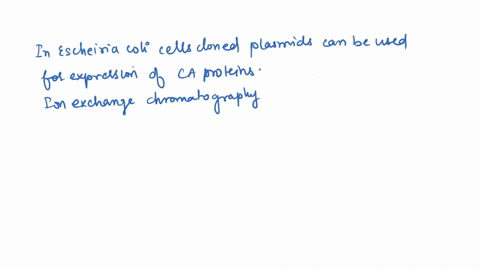 In Escheiria coli cells cloned plasmids can be used
for expression of CA proteins.
Ion exchange chromatography